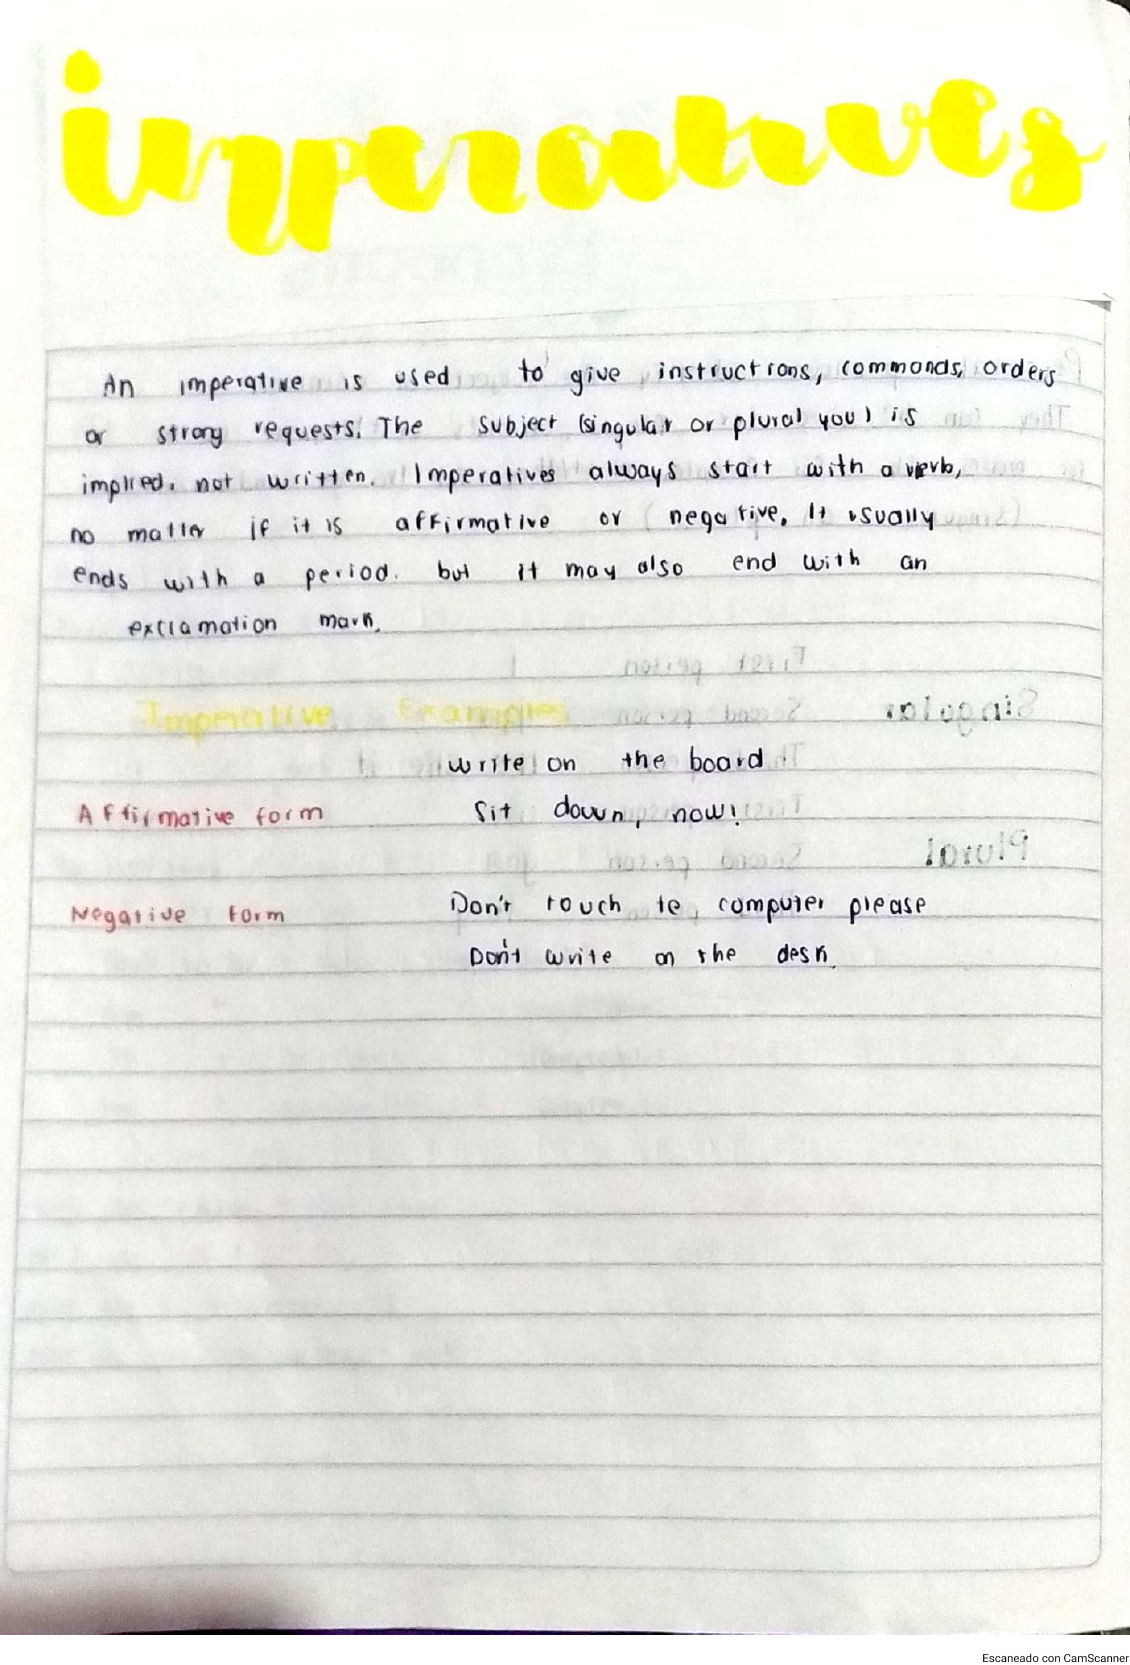 imperatives
An imperative is used to give instructions, commands, orders
or strong requests. The subject (singular or plural you) is
implied, not written. Imperatives always start with a verb,
no matter if it is affirmative or negative. It usually
ends with a period. but it may also end with an
exclamation mark.
Imperative Examples
write on the board
Affirmative form Sit down, now!
Negative form Don't touch te computer please
Don't write on the desk.
Escaneado con CamScanner